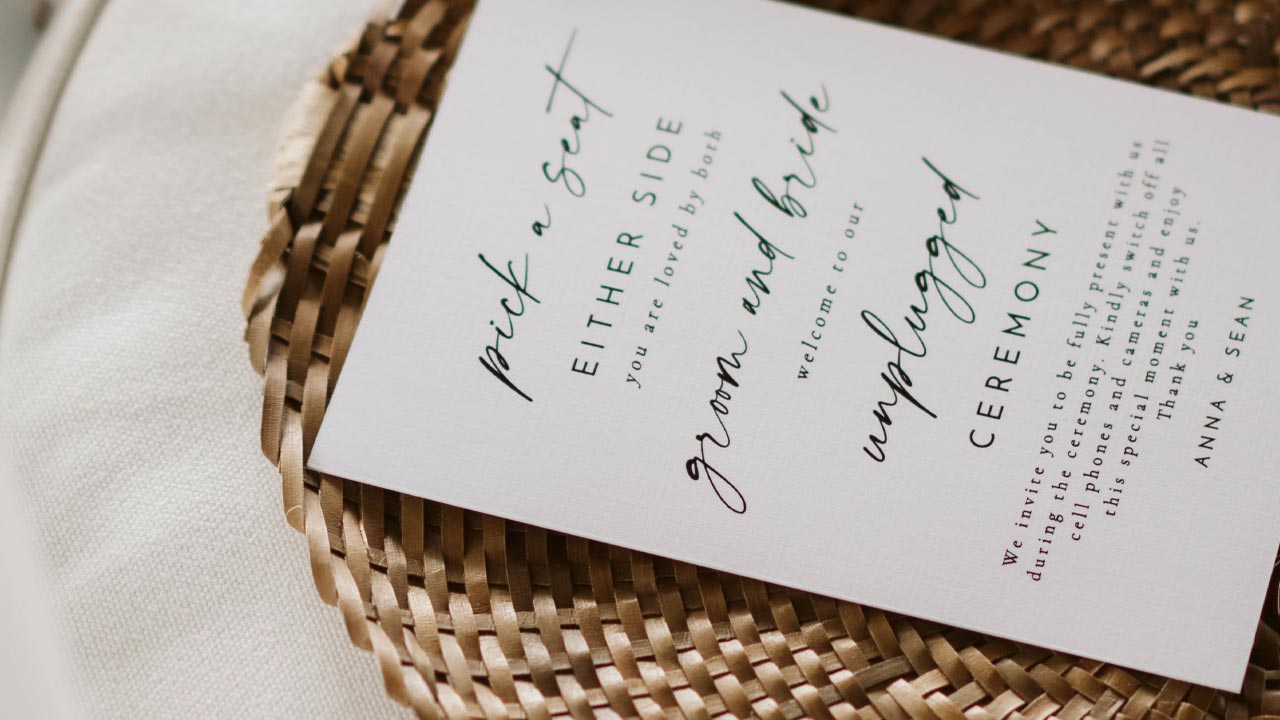 pick a seat
EITHER SIDE
you are loved by both
groom and bride
welcome to our
unplugged
CEREMONY
We invite you to be fully present with us
during the ceremony. Kindly switch off all
cell phones and cameras and enjoy
this special moment with us.
Thank you
ANNA & SEAN